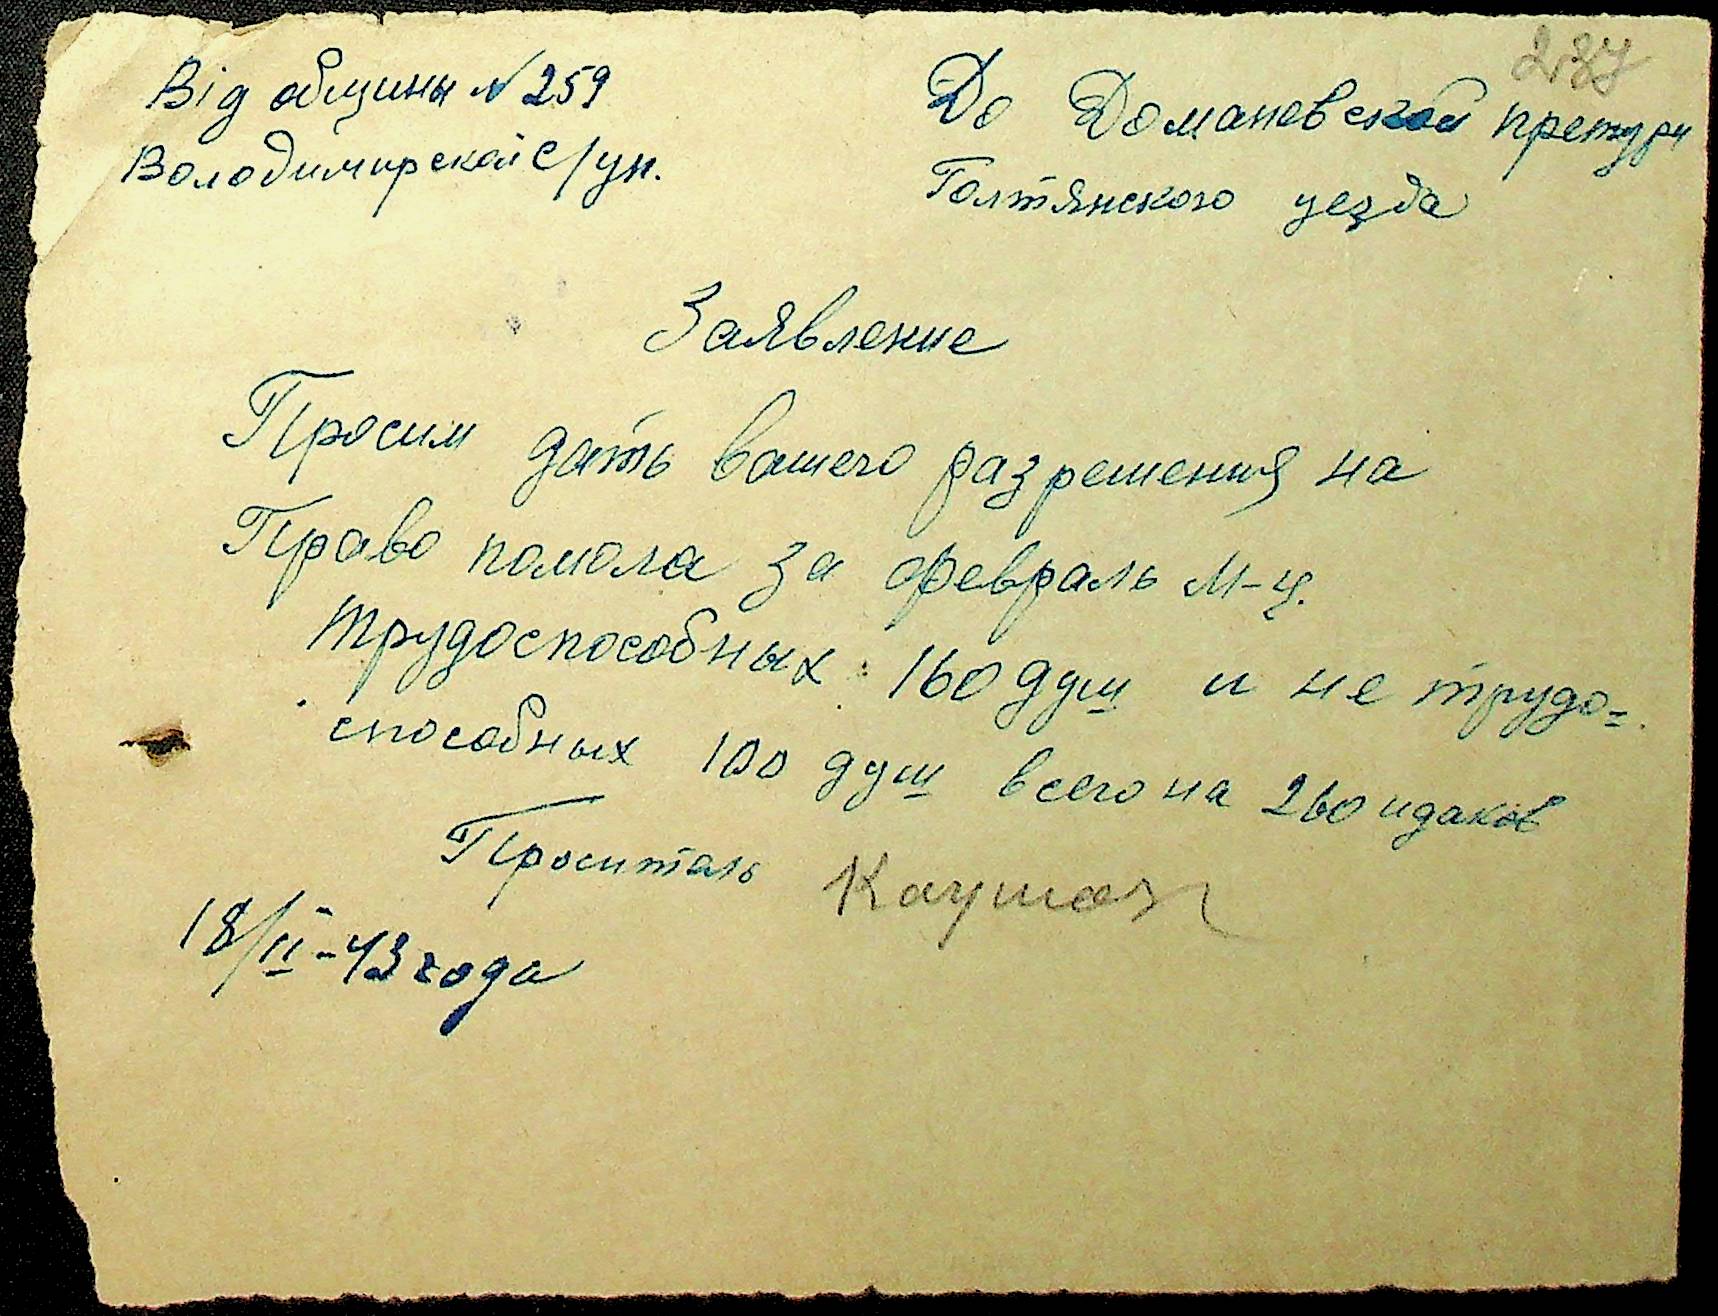 237
Від общины № 259
Володимирской с/ун.
До Домановской претури
Голтянского уезда
Заявление
Просим дать вашего разрешения на
Право помола за февраль м-ц.
Трудоспособных 160 душ и не трудо=
способных 100 душ всего на 260 идаков
Проситель
18/II-43 года